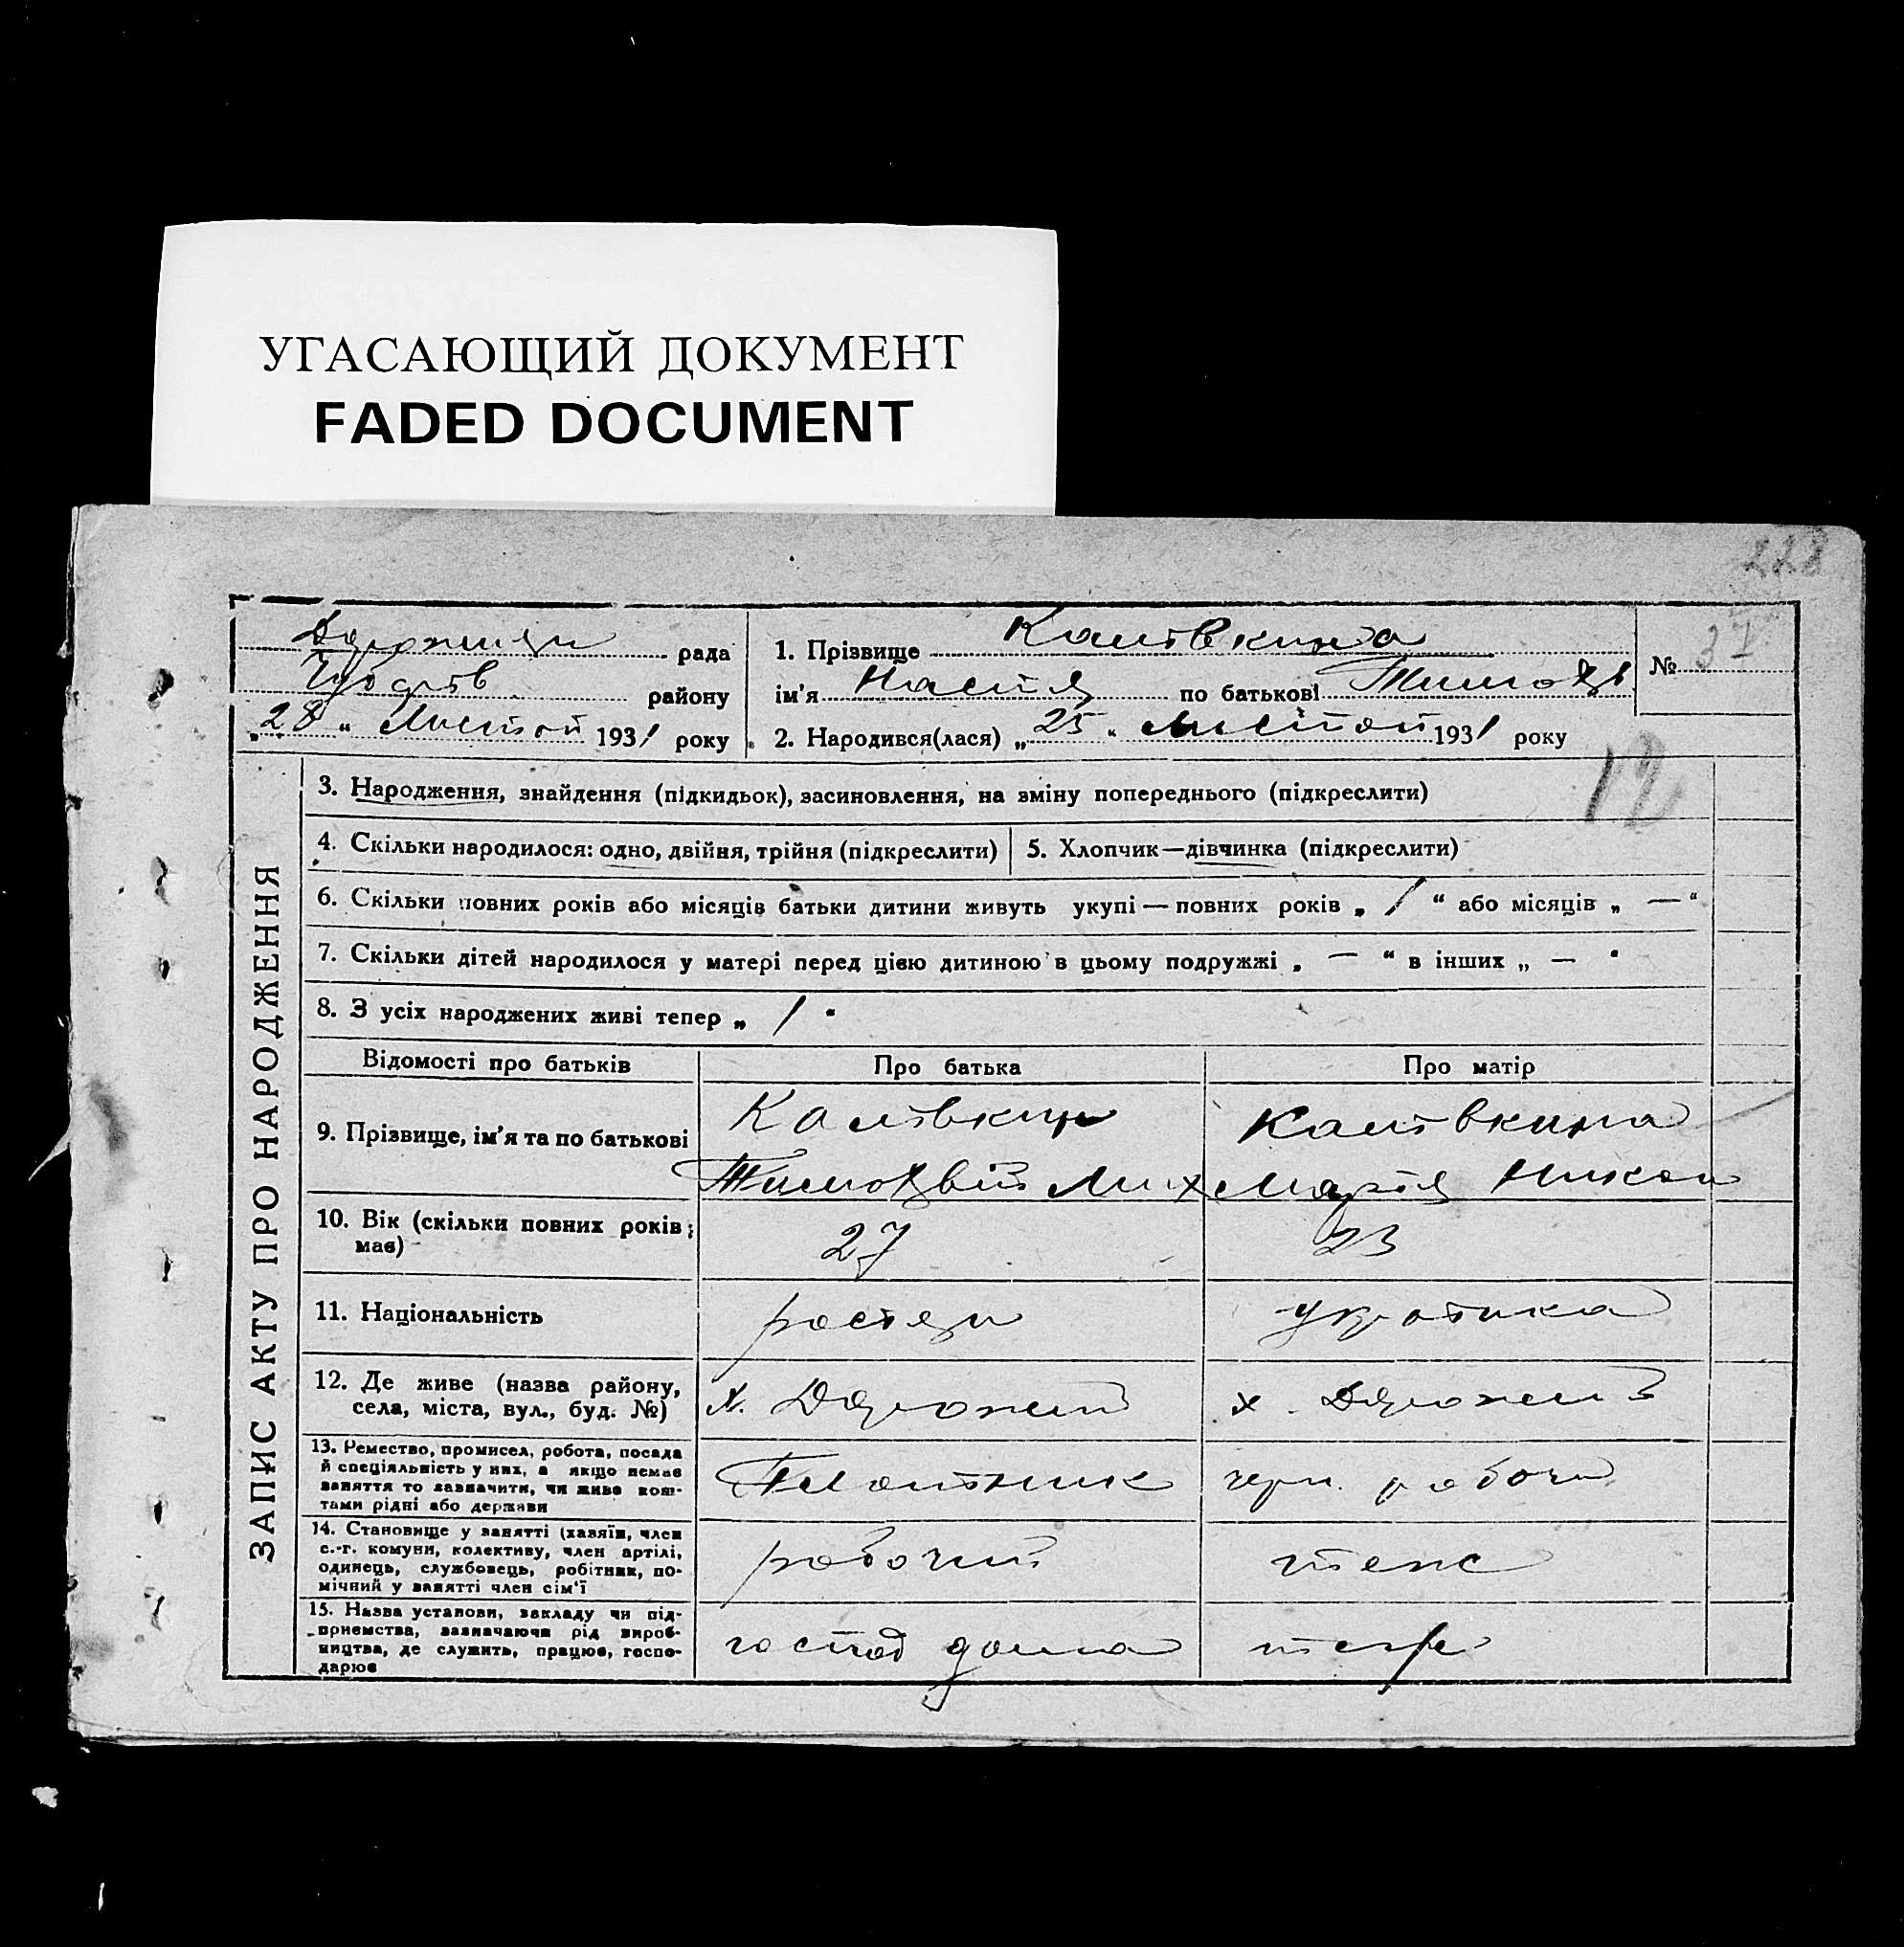 УГАСАЮЩИЙ ДОКУМЕНТ
FADED DOCUMENT
228
рада
району
„28“ Листоп 1931 року
1. Прізвище
ім'я Настя по батькові
2. Народився(лася) „25“ Листоп 1931 року
№ 37
12
ЗАПИС АКТУ ПРО НАРОДЖЕННЯ
3. Народження, знайдення (підкидьок), засиновлення, на зміну попереднього (підкреслити)
4. Скільки народилося: одно, двійня, трійня (підкреслити)
5. Хлопчик—дівчинка (підкреслити)
6. Скільки повних років або місяців батьки дитини живуть укупі — повних років „ 1 “ або місяців „ — “
7. Скільки дітей народилося у матері перед цією дитиною в цьому подружжі „ — “ в інших „ — “
8. З усіх народжених живі тепер „ 1 “
Відомості про батьків
Про батька
Про матір
9. Прізвище, ім'я та по батькові
Тимофвій Мих
Марія Никон
10. Вік (скільки повних років має)
27
23
11. Національність
12. Де живе (назва району,
села, міста, вул., буд. №)
х.
х.
13. Ремество, промисел, робота, посада
й спеціяльність у них, а якщо немає
заняття то зазначити, чи живе кош-
тами рідні або держави
Плотник
черн. робоч
14. Становище у занятті (хазяїн, член
с.-г. комуни, колективу, член артілі,
одинець, службовець, робітник, по-
мічний у занятті член сім'ї
робочий
теж
15. Назва установи, закладу чи під-
приємства, зазначаючи рід вироб-
ництва, де служить, працює, госпо-
дарює
дома